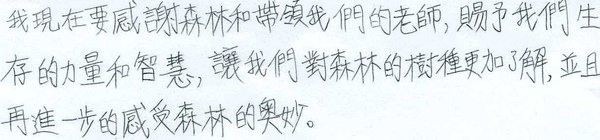 我現在要感謝森林和帶領我們的老師,賜予我們生
存的力量和智慧,讓我們對森林的樹種更加了解,並且
再進一步的感受森林的奧妙。